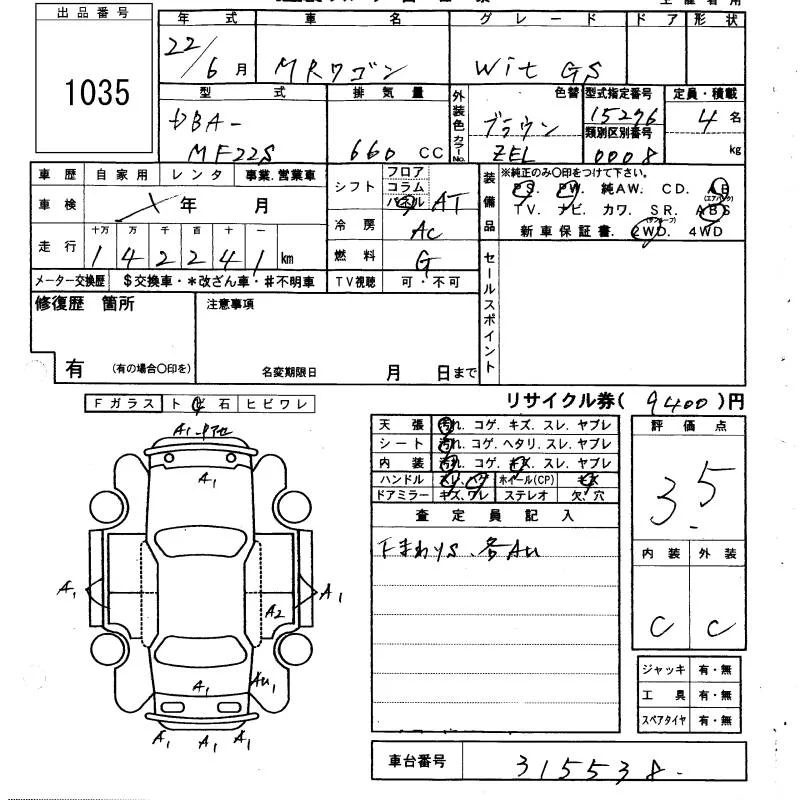 出品番号
1035
年 式 車 名 グレード ドア 形 状
22/6月 MRワゴン Wit GS
型 式 排気量 外装色 色替 型式指定番号 定員・積載
DBA- ブラウン 15276 4名
MF22S 660 CC カラーNo. ZEL 類別区別番号 0008 kg
車 歴 自家用 レンタ 事業.営業車
車 検 年 月
走 行 十万 万 千 百 十 一
1 4 2 2 4 1 km
シフト フロア コラム パネル AT
冷 房 AC
燃 料 G
TV視聴 可・不可
装備品 ※純正のみ〇印をつけて下さい。
PS. PW. 純AW. CD. AB (エアバック)
TV. ナビ. カワ. SR. ABS
新車保証書. 2WD. 4WD
セールスポイント
メーター交換歴 $交換車・*改ざん車・#不明車
修復歴 箇所 注意事項
有 (有の場合〇印を) 名変期限日 月 日まで
リサイクル券( 9400 )円
Fガラス ト ビ 石 ヒビワレ
A1
A1
A1 A2 A1
A1
A1 A1 A1
天 張 汚れ. コゲ. キズ. スレ. ヤブレ
シート 汚れ. コゲ. ヘタリ. スレ. ヤブレ
内 装 汚れ. コゲ. キズ. スレ. ヤブレ
ハンドル スレ. ハゲ ホイール(CP) キズ
ドアミラー キズ. ワレ ステレオ 欠. 穴
査 定 員 記 入
下まわりS.
評 価 点
3.5
内 装 外 装
C C
ジャッキ 有・無
工 具 有・無
スペアタイヤ 有・無
車台番号 315538